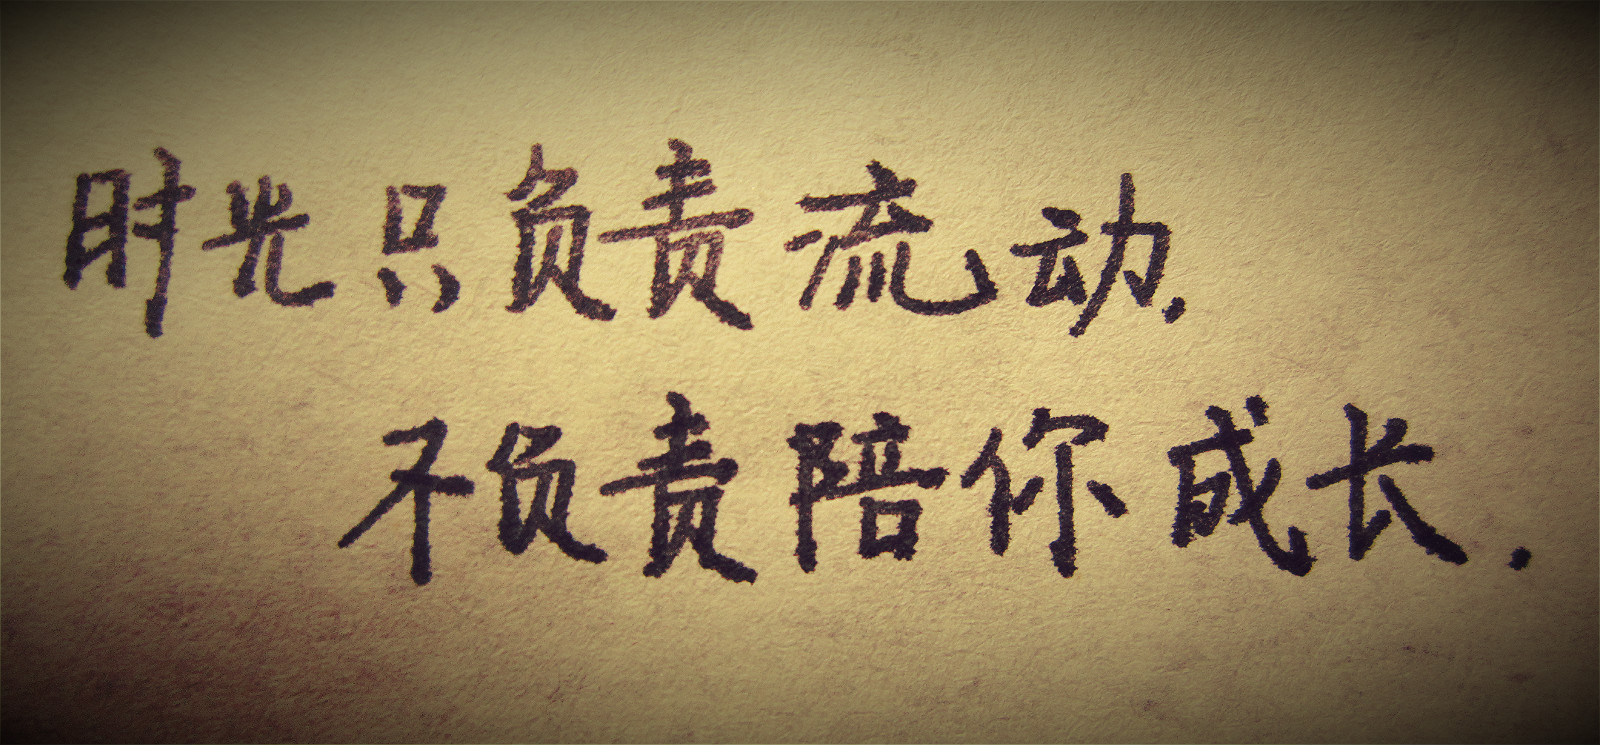 时光只负责流动.
不负责陪你成长.